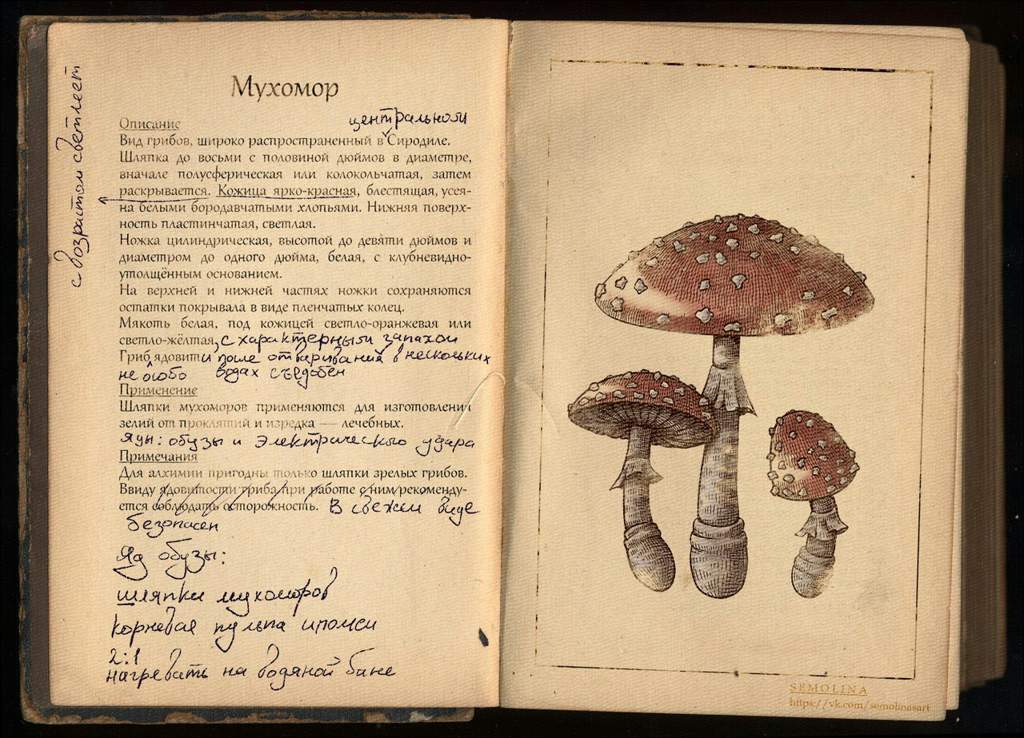 Мухомор
с возрастом светлеет
Описание
центральном
Вид грибов, широко распространенный в Сиродиле.
Шляпка до восьми с половиной дюймов в диаметре,
вначале полусферическая или колокольчатая, затем
раскрывается. Кожица ярко-красная, блестящая, усея-
на белыми бородавчатыми хлопьями. Нижняя поверх-
ность пластинчатая, светлая.
Ножка цилиндрическая, высотой до девяти дюймов и
диаметром до одного дюйма, белая, с клубневидно-
утолщённым основанием.
На верхней и нижней частях ножки сохраняются
остатки покрывала в виде пленчатых колец.
Мякоть белая, под кожицей светло-оранжевая или
светло-жёлтая, с характерным запахом
Гриб ядовит и после отваривания в нескольких
не особо водах съедобен
Применение
Шляпки мухоморов применяются для изготовления
зелий от проклятий и изредка — лечебных.
Яды: обузы и электрического удара
Примечания
Для алхимии пригодны только шляпки зрелых грибов.
Ввиду ядовитости гриба при работе с ним рекоменду-
ется соблюдать осторожность. В свежем виде
безопасен
Яд обузы:
шляпки мухоморов
корневая пульпа ипомеи
2:1
нагревать на водяной бане
SEMOLINA
https://vk.com/semolinasart